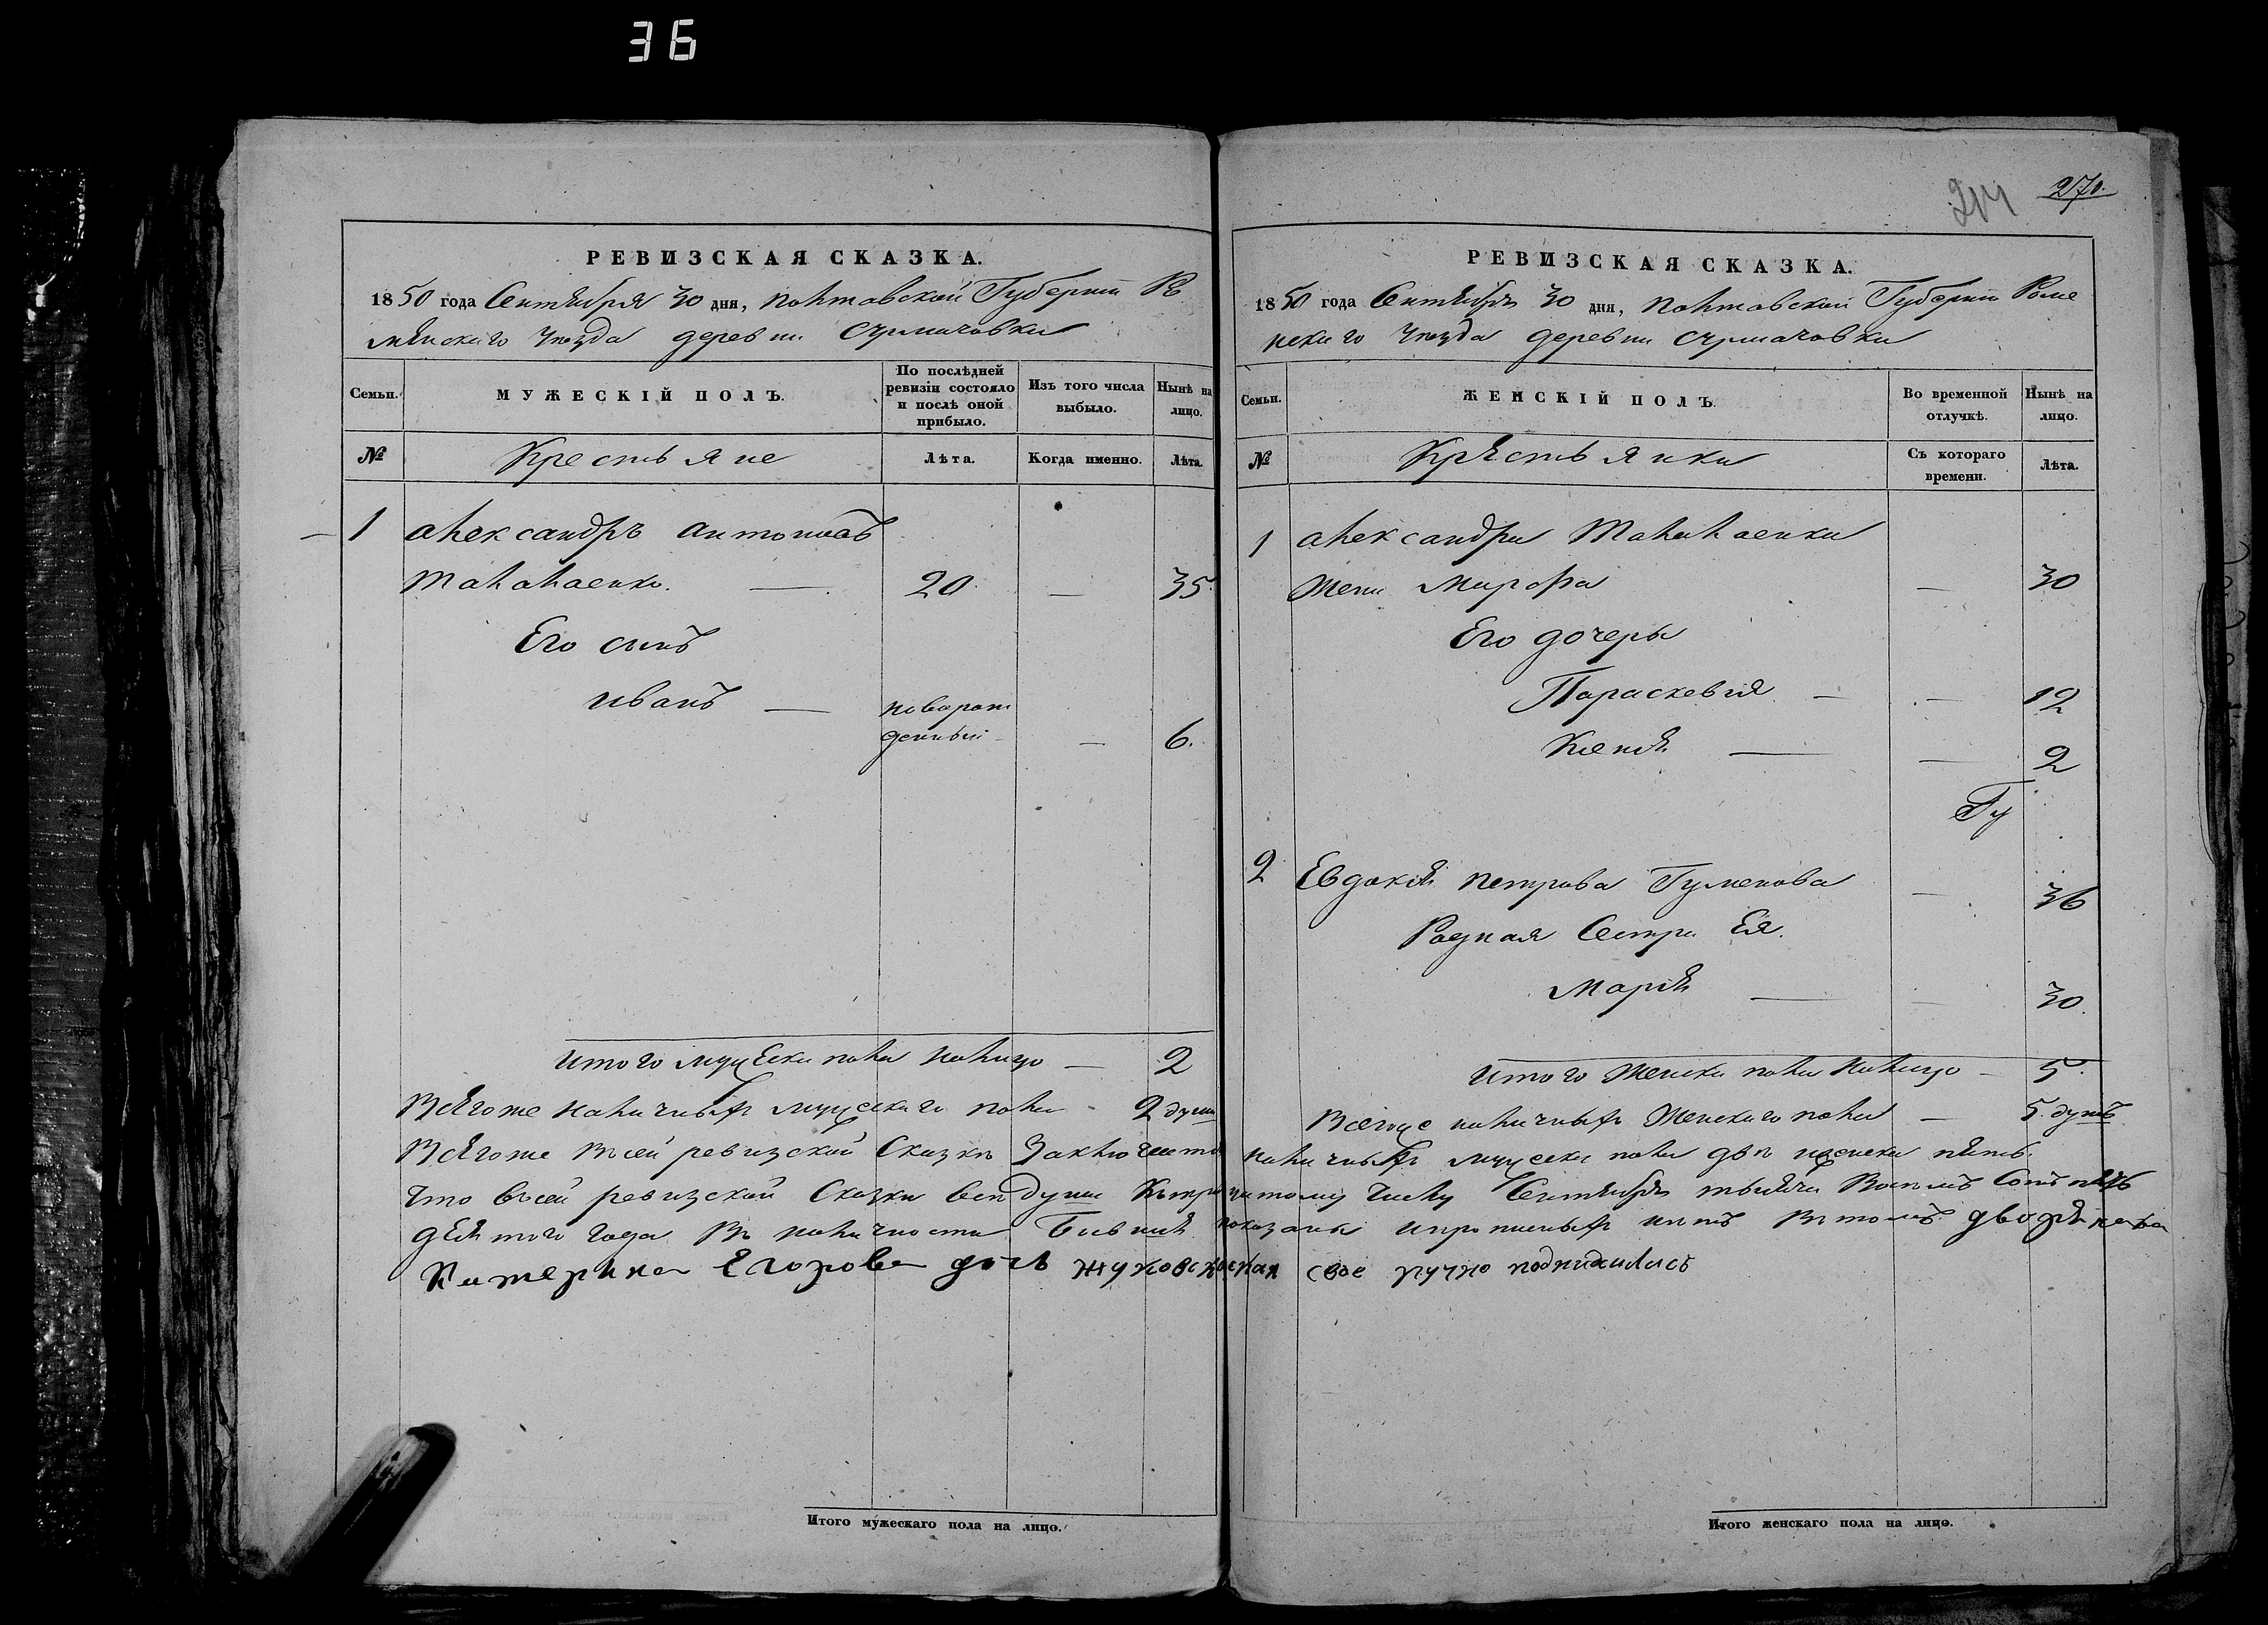 36
270.
РЕВИЗСКАЯ СКАЗКА.
1850 года Сентября 30 дня, Полтавской Губернии Ро
менскаго уезда деревни
Семьи.
МУЖЕСКІЙ ПОЛЪ.
По послѣдней ревизіи состояло и послѣ оной прибыло.
Изъ того числа выбыло.
Нынѣ на лицо.
№
Крестьяне
Лѣта.
Когда именно.
Лѣта.
1 Александръ Антоновъ
Малолаенко. — 20. — 35.
Его сынъ
Иванъ — новорож
денный — — 6.
Итого мужеска пола налицо — 2
Всягоже наличныхъ мужескаго пола - 2 души
РЕВИЗСКАЯ СКАЗКА.
1850 года Сентября 30 дня, Полтавской Губернии Роме
нскаго уезда деревни
Семьи.
ЖЕНСКІЙ ПОЛЪ.
Во временной отлучкѣ.
Нынѣ на лицо.
№
Крястьянки
Съ котораго времени.
Лѣта.
1 Александра
Жена Марфа — 30
Его дочеры
Параскевия — — 12
Ксения — — 2
Гу
2 Евдокия Петрова Гуменова — 36
Родная Сестра Ея.
Мария — — 30.
Итого Женска пола налицо — 5.
Всегоже наличныхъ Женскаго пола — 5. душъ
Всягоже Всей ревизской Сказки Заключается наличныхъ мужеска пола две женска пять.
что всей ревизской Сказки все души Сентября тысяча Восемь Сотъ пять
десятого года В наличности Бывшия показаны и прописныхъ нетъ Втомъ дворянка
Катерина Егорова дочь Жуковская свое ручно подписалась
Итого мужескаго пола на лицо.
Итого женскаго пола на лицо.